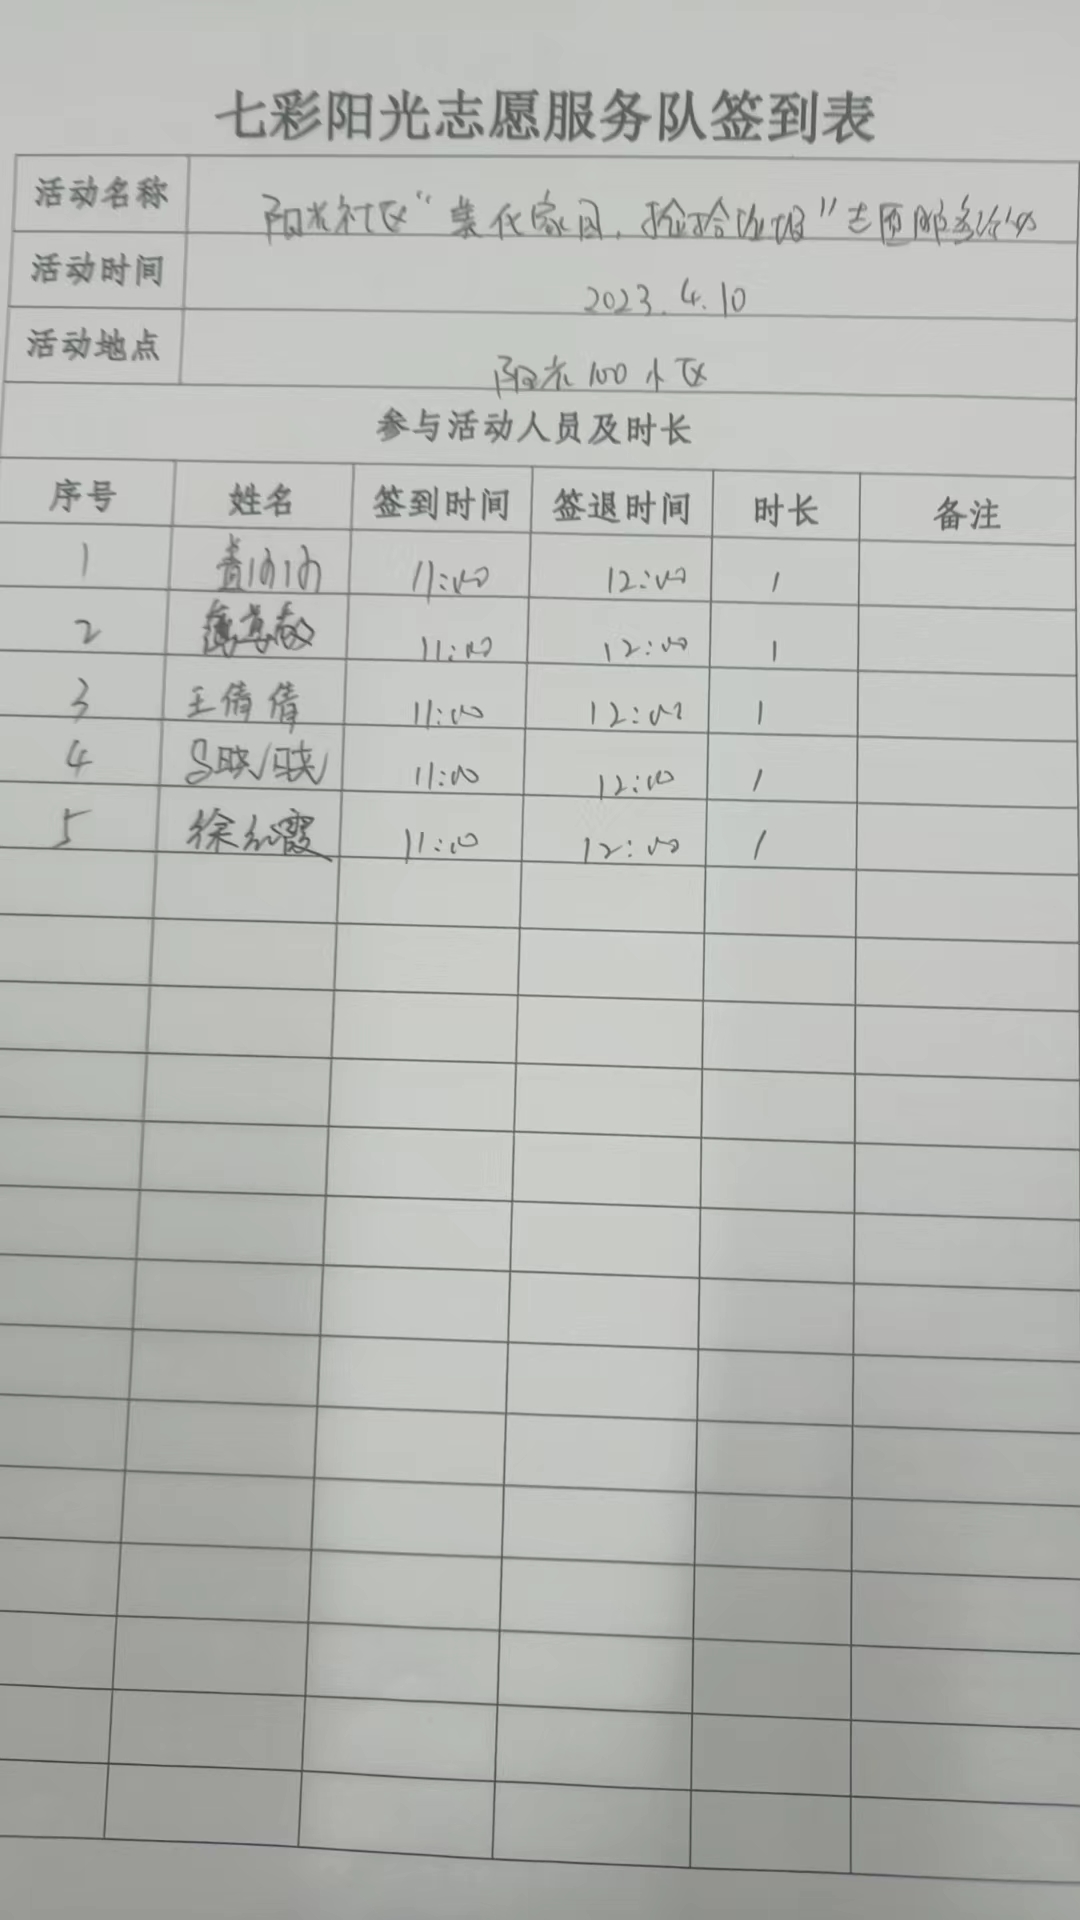 七彩阳光志愿服务队签到表
活动名称 阳光社区“美化家园，捡拾垃圾”志愿服务活动
活动时间 2023.4.10
活动地点 阳光100小区
参与活动人员及时长
序号 姓名 签到时间 签退时间 时长 备注
1 11:00 12:00 1
2 11:00 12:00 1
3 王倩倩 11:00 12:00 1
4 11:00 12:00 1
5 徐红霞 11:00 12:00 1